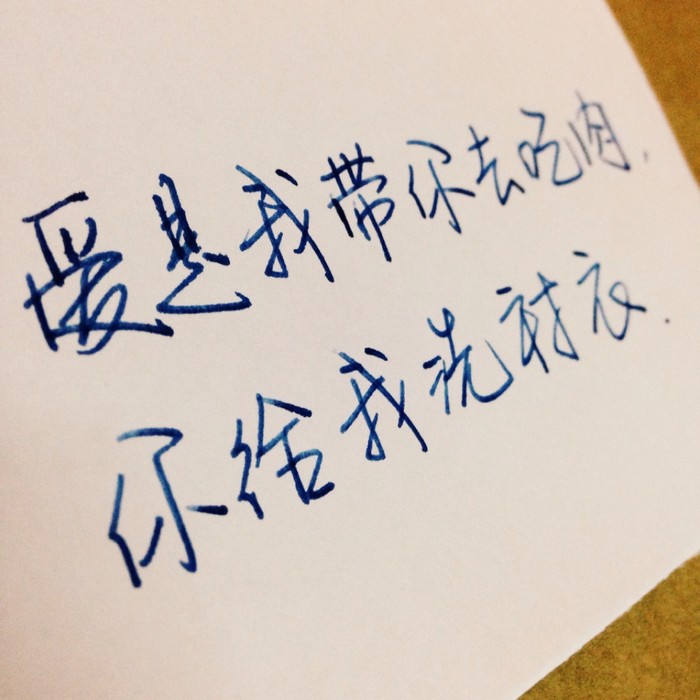 爱是我带你去吃肉,
你给我洗衬衣.